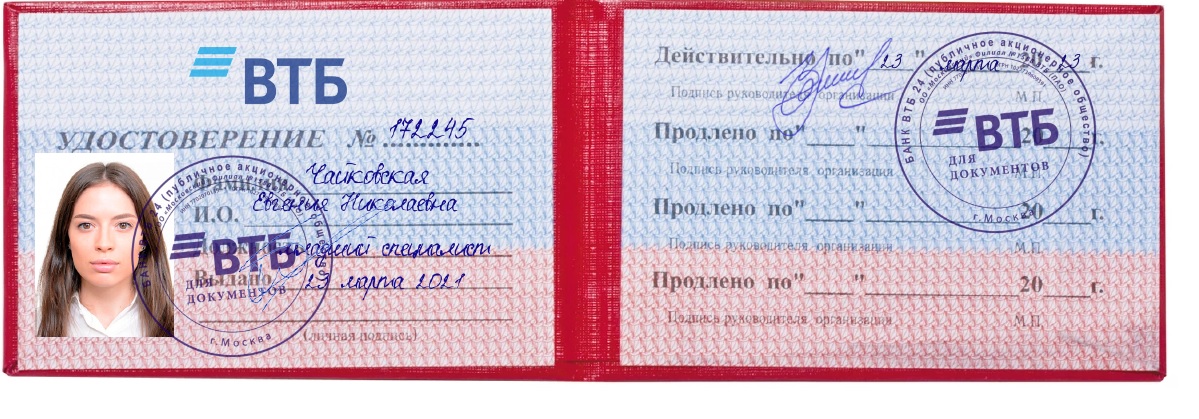 ВТБ
УДОСТОВЕРЕНИЕ № 172245
Фамилия Чайковская
И.О. Евгения Николаевна
Должность младший специалист
Выдано 23 марта 2021
(личная подпись)
БАНК ВТБ 24 (публичное акционерное общество)
ВТБ
ДЛЯ
ДОКУМЕНТОВ
г.Москва
Действительно по "23" марта 2023 г.
Подпись руководителя организации М.П.
Продлено по "___" ______ 20___ г.
Подпись руководителя организации М.П.
Продлено по "___" ______ 20___ г.
Подпись руководителя организации М.П.
Продлено по "___" ______ 20___ г.
Подпись руководителя организации М.П.
БАНК ВТБ 24 (публичное акционерное общество)
ВТБ
ДЛЯ
ДОКУМЕНТОВ
г.Москва